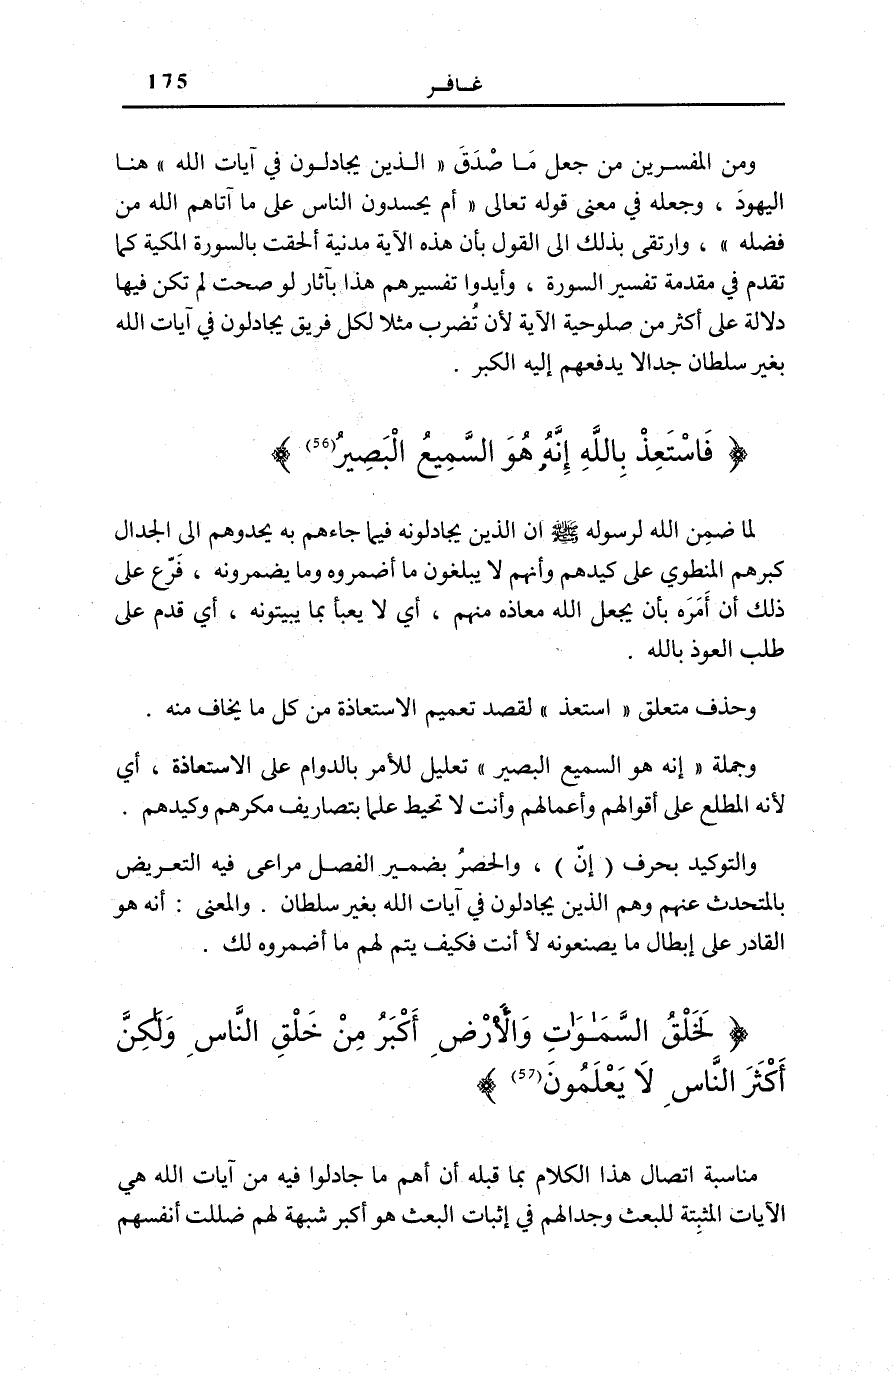 غـافـر 175
ومن المفسـرين من جعل مَـا صْدَقَ « الـذين يجادلـون في آيات الله » هنـا
اليهودَ ، وجعله في معنى قوله تعالى « أم يحسدون الناس على ما آتاهم الله من
فضله » ، وارتقى بذلك الى القول بأن هذه الآية مدنية ألحقت بالسورة المكية كما
تقدم في مقدمة تفسير السورة ، وأيدوا تفسيرهم هذا بآثار لو صحت لم تكن فيها
دلالة على أكثر من صلوحية الآية لأن تُضرب مثلا لكل فريق يجادلون في آيات الله
بغير سلطان جدالا يدفعهم إليه الكبر .
﴿ فَاسْتَعِذْ بِاللَّهِ إِنَّهُۥ هُوَ السَّمِيعُ الْبَصِيرُ(56) ﴾
لما ضمِن الله لرسوله ﷺ ان الذين يجادلونه فيما جاءهم به يحدوهم الى الجدال
كبرهم المنطوي على كيدهم وأنهم لا يبلغون ما أضمروه وما يضمرونه ، فَرّع على
ذلك أن أَمَرَه بأن يجعل الله معاذه منهم ، أي لا يعبأ بما يبيتونه ، أي قدم على
طلب العوذ بالله .
وحذف متعلق « استعذ » لقصد تعميم الاستعاذة من كل ما يخاف منه .
وجملة « إنه هو السميع البصير » تعليل للأمر بالدوام على الاستعاذة ، أي
لأنه المطلع على أقوالهم وأعمالهم وأنت لا تحيط علما بتصاريف مكرهم وكيدهم .
والتوكيد بحرف ( إنّ ) ، والحصرُ بضمـير الفصـل مراعى فيه التعـريض
بالمتحدث عنهم وهم الذين يجادلون في آيات الله بغير سلطان . والمعنى : أنه هو
القادر على إبطال ما يصنعونه لأ أنت فكيف يتم لهم ما أضمروه لك .
﴿ لَخَلْقُ السَّمَـٰوَٰتِ وَالْأَرْضِ أَكْبَرُ مِنْ خَلْقِ النَّاسِ وَلَٰكِنَّ
أَكْثَرَ النَّاسِ لَا يَعْلَمُونَ(57) ﴾
مناسبة اتصال هذا الكلام بما قبله أن أهم ما جادلوا فيه من آيات الله هي
الآيات المثبِتة للبعث وجدالهم في إثبات البعث هو أكبر شبهة لهم ضللت أنفسهم